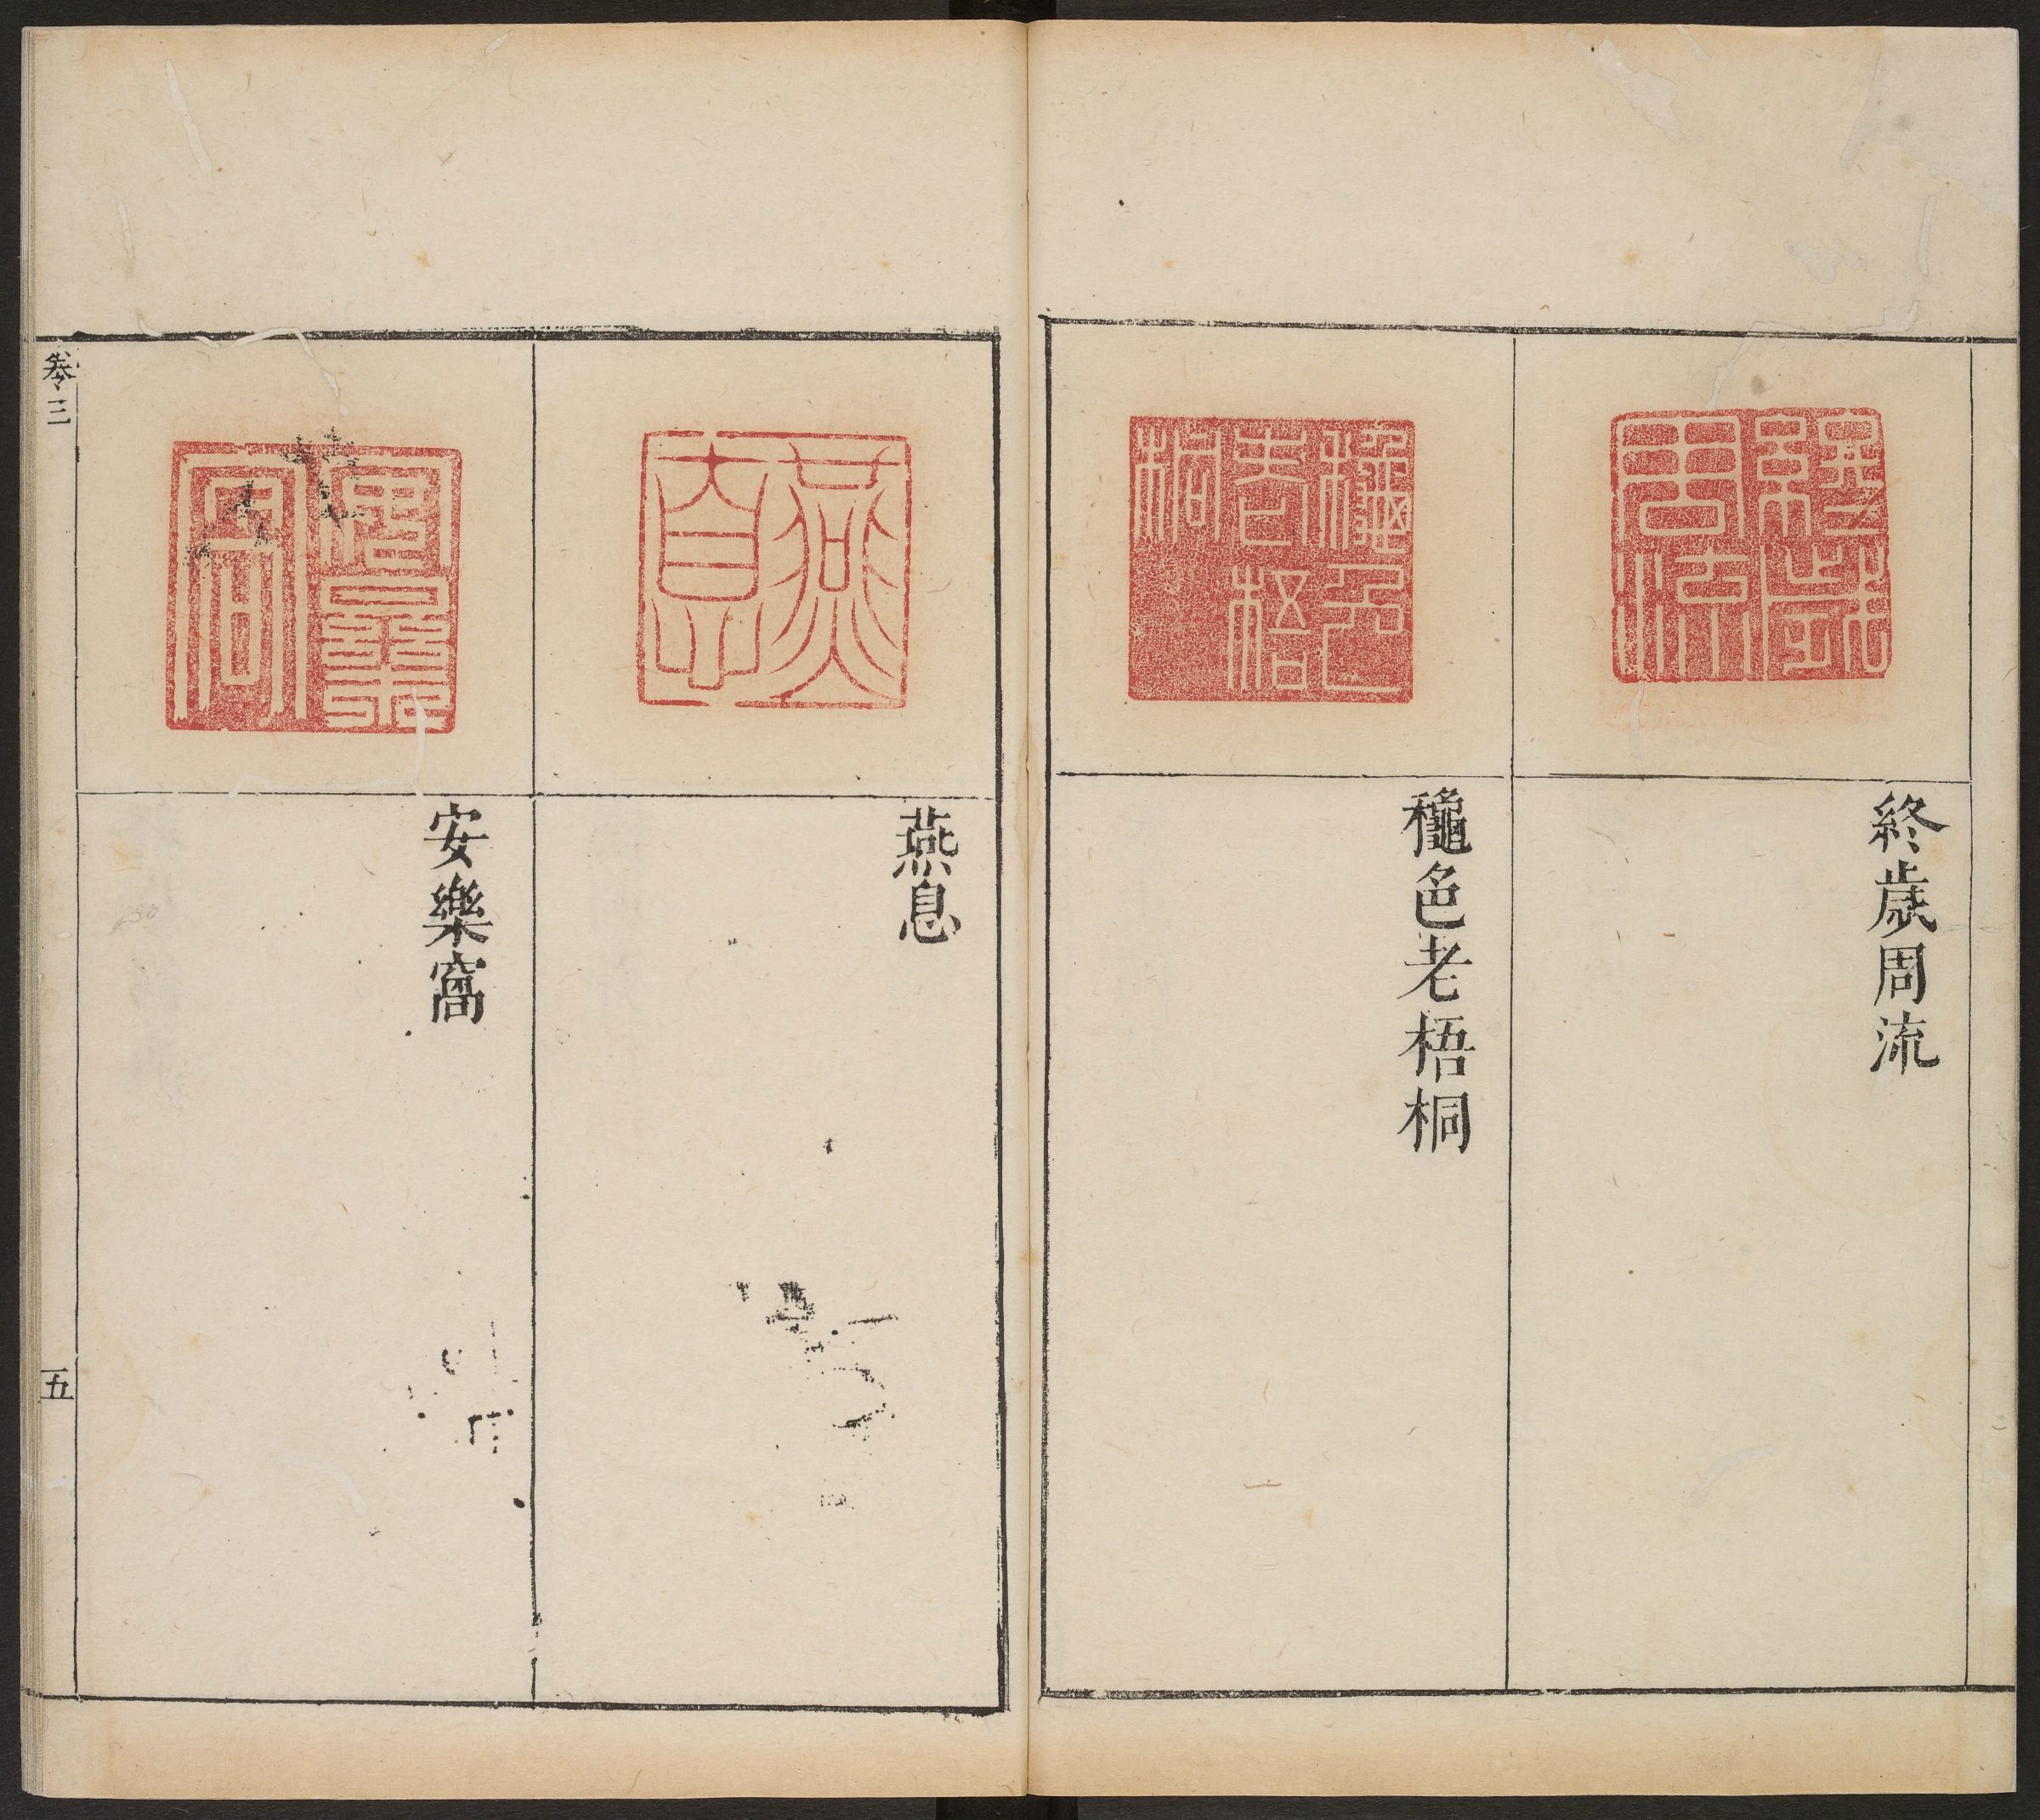 終歲周流
龝色老梧桐
燕息
安樂窩
卷三
五